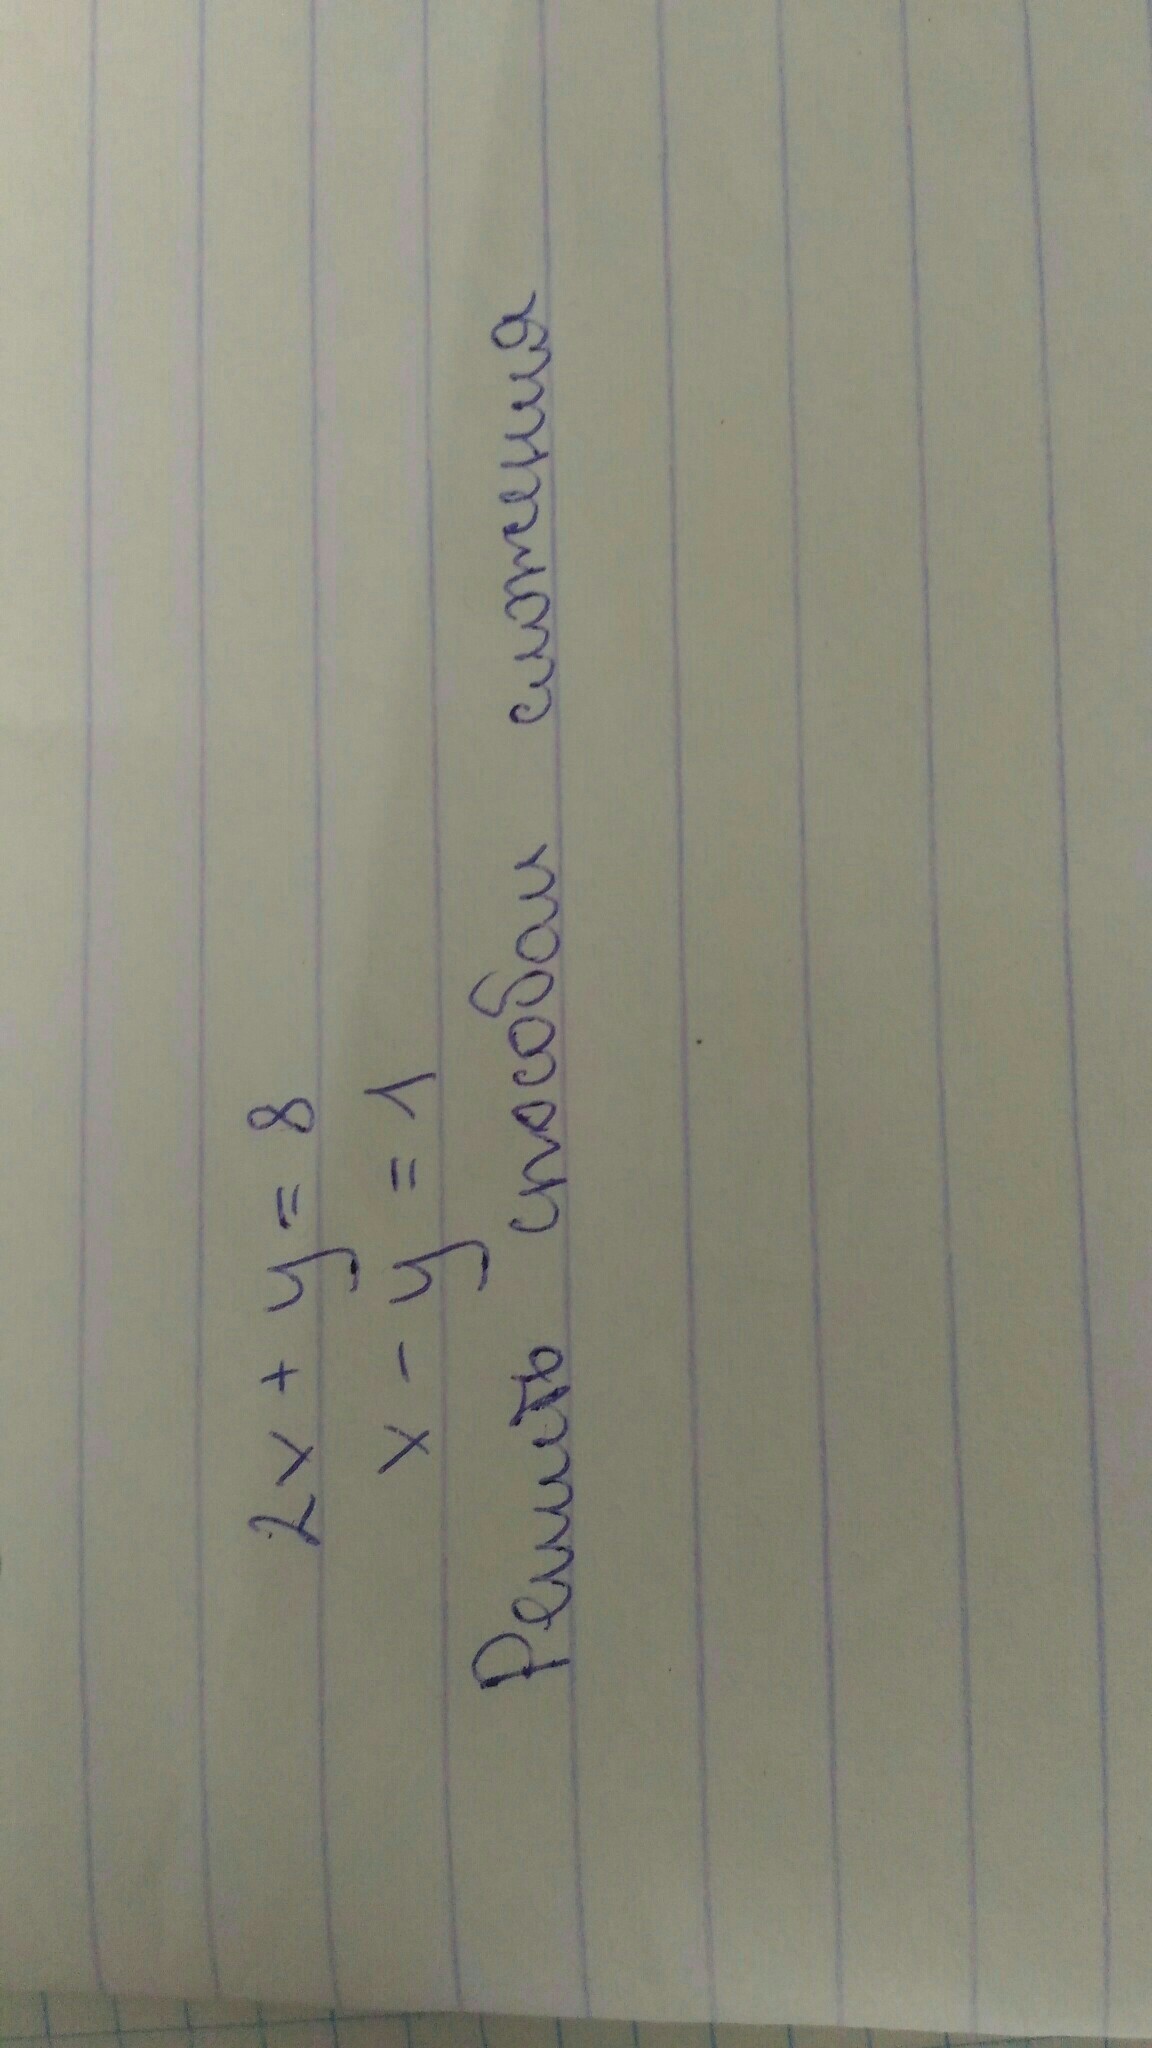 2x + y = 8
x - y = 1
Решить способом сложения